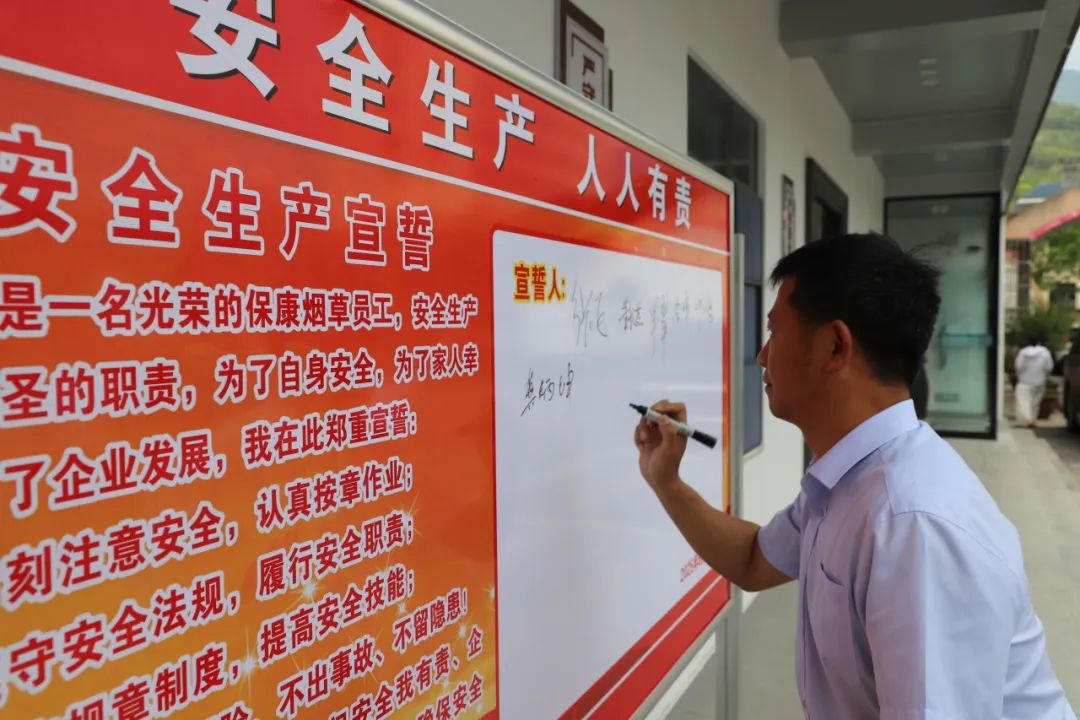 安全生产 人人有责
安全生产宣誓
是一名光荣的保康烟草员工，安全生产
圣的职责，为了自身安全，为了家人幸
了企业发展，我在此郑重宣誓：
刻注意安全，认真按章作业；
守安全法规，履行安全职责；
规章制度，提高安全技能；
不出事故、不留隐患！
全我有责、企
确保安全
宣誓人：
严守